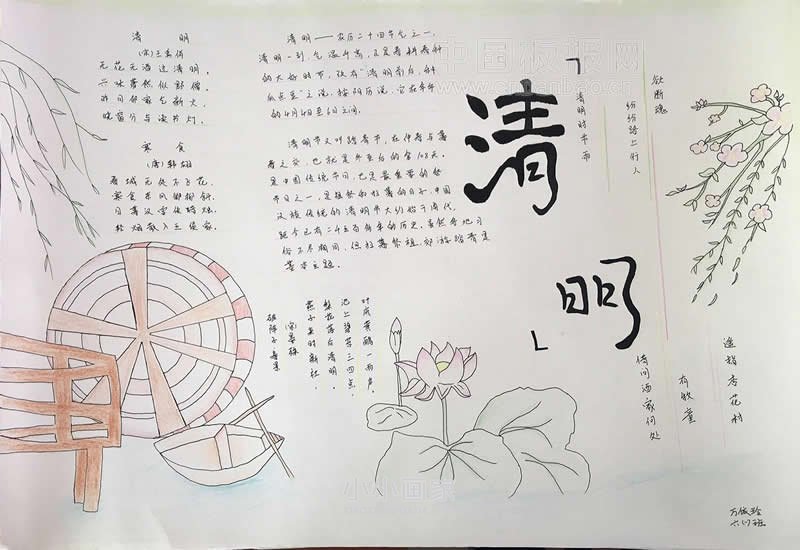 清 明
(宋)王禹偁
无花无酒过清明,
兴味萧然似野僧。
昨日邻家乞新火,
晓窗分与读书灯。
寒 食
(唐)韩翃
春城无处不飞花,
寒食东风御柳斜。
日暮汉宫传蜡烛,
轻烟散入五侯家。
清明——农历二十四节气之一,
清明一到,气温升高,正是春耕春种
的大好时节,故有“清明前后,种
瓜点豆”之说。按阳历说,它在每年
的4月4日至6日之间。
清明节又叫踏青节,在仲春与暮
春之交,也就是冬至后的第108天。
是中国传统节日,也是最重要的祭
祀节日之一,是祭祖和扫墓的日子。中国
汉族传统的清明节大约始于周代,
距今已有二千五百多年的历史。虽然各地习
俗不尽相同,但扫墓祭祖、郊游踏青是
基本主题。
「清明」
清明时节雨
纷纷路上行人
欲断魂
借问酒家何处
有牧童
遥指杏花村
破阵子·春景
(宋)晏殊
燕子来时新社,
梨花落后清明。
池上碧苔三四点,
叶底黄鹂一两声,
六(7)班
中国板报网
小小画家